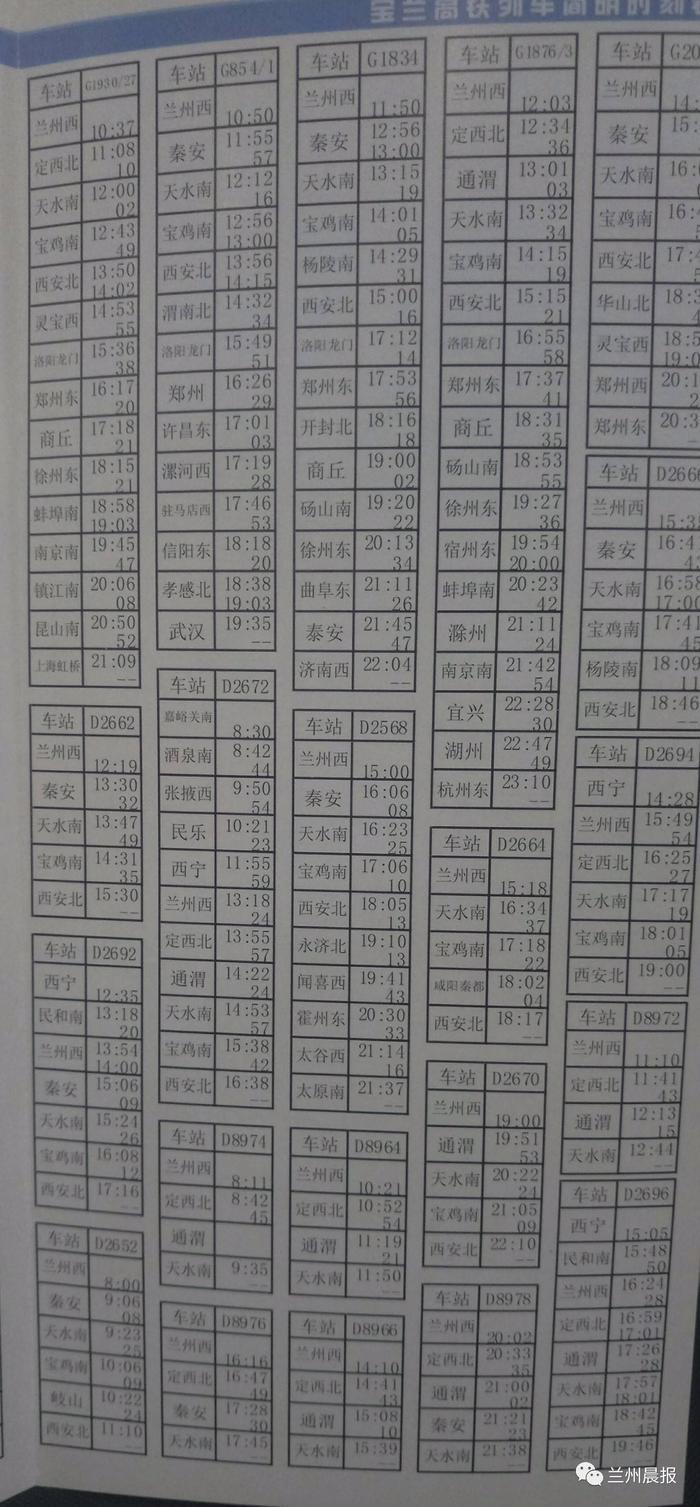 宝兰高铁列车简明时刻表
车站 G1930/27
兰州西 10:37
定西北 11:08 10
天水南 12:00 02
宝鸡南 12:43 49
西安北 13:50 14:02
灵宝西 14:53 55
洛阳龙门 15:36 38
郑州东 16:17 20
商丘 17:18 21
徐州东 18:15 21
蚌埠南 18:58 19:03
南京南 19:45 47
镇江南 20:06 08
昆山南 20:50 52
上海虹桥 21:09 --
车站 D2662
兰州西 12:19
秦安 13:30 32
天水南 13:47 49
宝鸡南 14:31 35
西安北 15:30 --
车站 D2692
西宁 12:35
民和南 13:18 20
兰州西 13:54 14:00
秦安 15:06 09
天水南 15:24 26
宝鸡南 16:08 12
西安北 17:16 --
车站 D2652
兰州西 8:00
秦安 9:06 08
天水南 9:23 25
宝鸡南 10:06 09
岐山 10:22 24
西安北 11:10 --
车站 G854/1
兰州西 10:50
秦安 11:55 57
天水南 12:12 16
宝鸡南 12:56 13:00
西安北 13:56 14:15
渭南北 14:32 34
洛阳龙门 15:49 51
郑州 16:26 29
许昌东 17:01 03
漯河西 17:19 28
驻马店西 17:46 53
信阳东 18:18 20
孝感北 18:38 19:03
武汉 19:35 --
车站 D2672
嘉峪关南 8:30
酒泉南 8:42 44
张掖西 9:50 54
民乐 10:21 23
西宁 11:55 59
兰州西 13:18 24
定西北 13:55 57
通渭 14:22 24
天水南 14:53 57
宝鸡南 15:38 42
西安北 16:38 --
车站 D8974
兰州西 8:11
定西北 8:42 45
通渭
天水南 9:35 --
车站 D8976
兰州西 16:16
定西北 16:47 49
秦安 17:28 30
天水南 17:45 --
车站 G1834
兰州西 11:50
秦安 12:56 13:00
天水南 13:15 19
宝鸡南 14:01 05
杨陵南 14:29 31
西安北 15:00 16
洛阳龙门 17:12 14
郑州东 17:53 56
开封北 18:16 18
商丘 19:00 02
砀山南 19:20 22
徐州东 20:13 34
曲阜东 21:11 26
泰安 21:45 47
济南西 22:04 --
车站 D2568
兰州西 15:00
秦安 16:06 08
天水南 16:23 25
宝鸡南 17:06 10
西安北 18:05 13
永济北 19:10 13
闻喜西 19:41 43
霍州东 20:30 33
太谷西 21:14 16
太原南 21:37 --
车站 D8964
兰州西 10:21
定西北 10:52 54
通渭 11:19 21
天水南 11:50 --
车站 D8966
兰州西 14:10
定西北 14:41 43
通渭 15:08 10
天水南 15:39 --
车站 G1876/3
兰州西 12:03
定西北 12:34 36
通渭 13:01 03
天水南 13:32 34
宝鸡南 14:15 19
西安北 15:15 21
洛阳龙门 16:55 58
郑州东 17:37 41
商丘 18:31 35
砀山南 18:53 55
徐州东 19:27 36
宿州东 19:54 20:00
蚌埠南 20:23 42
滁州 21:11 24
南京南 21:42 54
宜兴 22:28 30
湖州 22:47 49
杭州东 23:10 --
车站 D2664
兰州西 15:18
天水南 16:34 37
宝鸡南 17:18 22
咸阳秦都 18:02 04
西安北 18:17 --
车站 D2670
兰州西 19:00
通渭 19:51 53
天水南 20:22 24
宝鸡南 21:05 09
西安北 22:10 --
车站 D8978
兰州西 20:02
定西北 20:33 35
通渭 21:00 02
秦安 21:21 23
天水南 21:38 --
车站 G20
兰州西 14:
秦安 15:
天水南 16:
宝鸡南 16:4
西安北 17:4
华山北 18:3
灵宝西 18:5 19:0
郑州西 20:1
郑州东 20:3
车站 D2666
兰州西 15:35
秦安 16:41
天水南 16:58 17:00
宝鸡南 17:41 45
杨陵南 18:09 11
西安北 18:46 --
车站 D2694
西宁 14:28
兰州西 15:49 54
定西北 16:25 27
天水南 17:17 19
宝鸡南 18:01 05
西安北 19:00 --
车站 D8972
兰州西 11:10
定西北 11:41 43
通渭 12:13 15
天水南 12:44 --
车站 D2696
西宁 15:05
民和南 15:48 50
兰州西 16:24 28
定西北 16:59 17:01
通渭 17:26 28
天水南 17:57 18:01
宝鸡南 18:42 45
西安北 19:46 --
兰州晨报